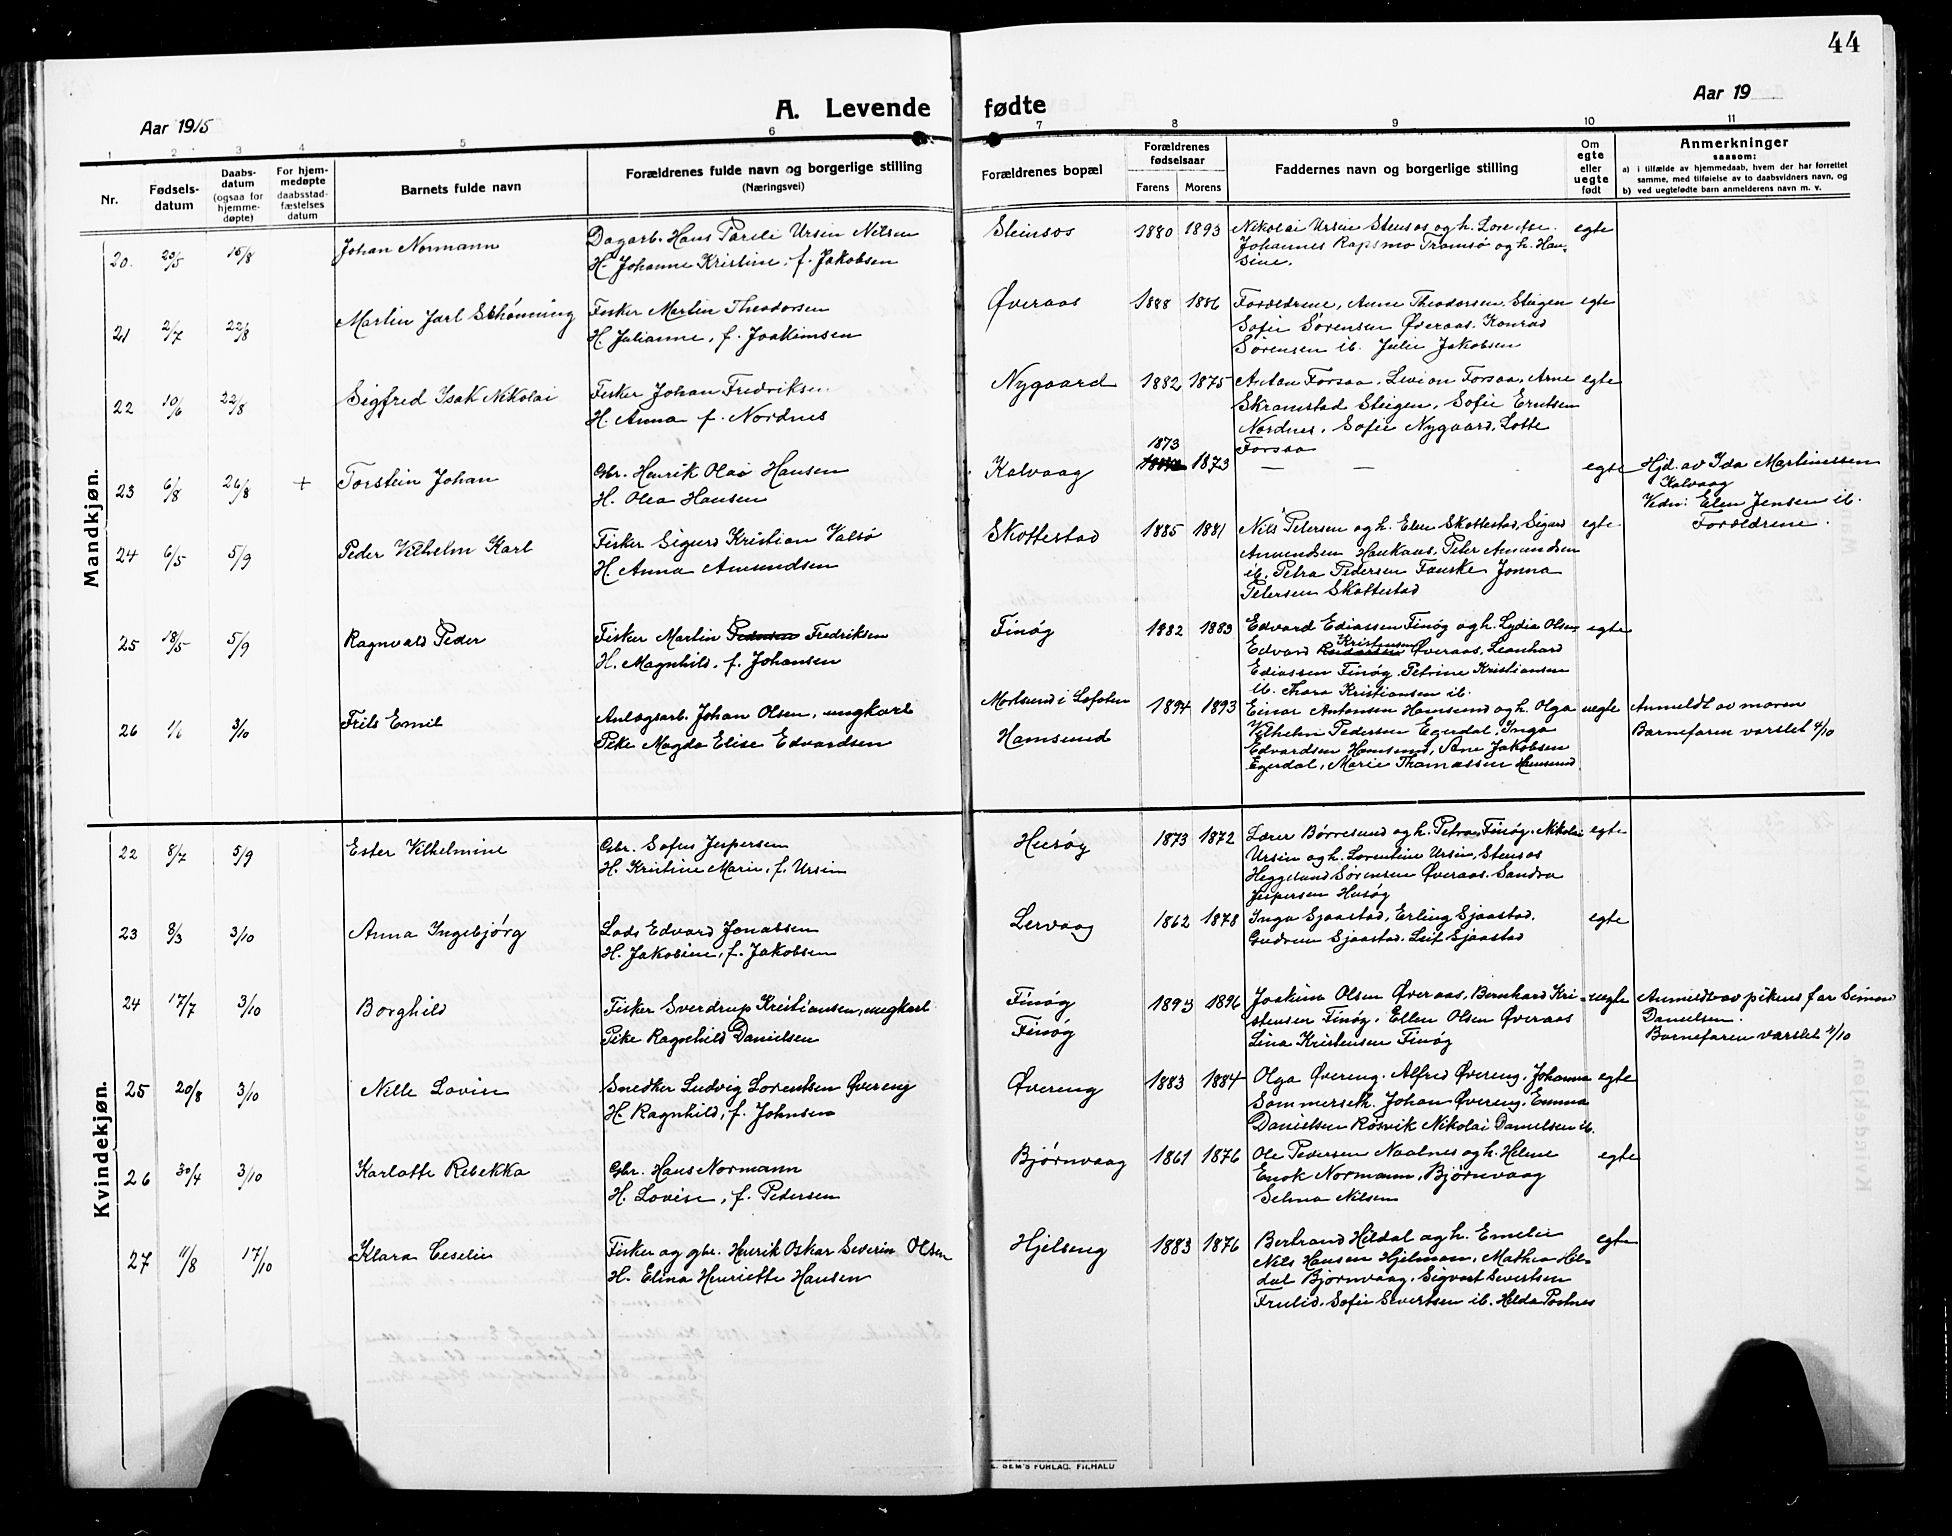 44
Aar 1915
A. Levende fødte
Aar 19
1 2 3 4 5 6 7 8 9 10 11
Nr.
Fødsels-
datum
Daabs-
datum
(ogsaa for
hjemme-
døpte)
For hjem-
medøpte
daabsstad-
fæstelses
datum
Barnets fulde navn
Forældrenes fulde navn og borgerlige stilling
(Næringsvei)
Forældrenes bopæl
Forældrenes
fødselsaar
Farens Morens
Faddernes navn og borgerlige stilling
Om
egte
eller
uegte
født
Anmerkninger
saasom:
a) i tilfælde av hjemmedaab, hvem der har forrettet
samme, med tilføielse av to daabsvidners navn, og
b) ved uegtefødte barn anmelderens navn m. v.
Mandkjøn.
20. 20/5 15/8 Johan Normann
Dagarb. Hans Pareli Ursin Nilsen
H. Johanne Kristine, f. Jakobsen
Steinsos 1880 1893
Nikolai Ursin Stensos og h. Lorentse.
Johannes Rapsmo Tromsø og h. Han-
sine.
egte
21 2/7 22/8 Martin Jarl Schønning
Fisker Martin Theodorsen
H. Julianne, f. Joakimsen
Øveraas 1888 1886
Forældrene, Anne Theodorsen Steigen
Sofie Sørensen Øveraas. Konrad
Sørensen ib. Julie Jakobsen
egte
22 10/6 22/8 Sigfred Isak Nikolai
Fisker Johan Fredriksen
H. Anna f. Nordnes
Nygaard 1882 1875
Anton Forsaa. Levion Forsaa, Arne
Skramstad Steigen, Sofie Erntsen
Nordnes. Sofie Nygaard. Lotte
Forsaa
egte
23 6/8 26/8 + Torstein Johan
Gbr. Henrik Olai Hansen
H. Olea Hansen
Kalvaag 1873 1873
— —
egte
Hjd. av Ida Martinussen
Kalvaag
Vidn: Elen Jensen ib.
Forældrene.
24 6/5 5/9 Peder Vilhelm Karl
Fisker Sigurd Kristian Valsø
H. Anna Amundsen
Skottestad 1885 1881
Nils Petersen og h. Elen Skottestad, Sigurd
Amundsen Haukaas. Peter Amundsen
ib. Petra Pedersen Fauske Jonna
Petersen Skottestad
egte
25 18/5 5/9 Ragnvald Peder
Fisker Martin Pedersen Fredriksen
H. Magnhild, f. Johansen
Finøy 1882 1883
Edvard Ediassen Finøy og h. Lydia Olsen
Edvard Kristensen Øveraas. Leonhard
Ediassen Finøy. Petrine Kristiansen
ib. Thora Kristiansen ib.
egte
26 1/6 3/10 Frits Emil
Anlægsarb. Johan Olsen, ungkarl
Pike Magda Elise Edvardsen
Mortsund i Lofoten
Hamsund
1894 1893
Einar Antonsen Hamsund og h. Olga
Vilhelm Pedersen Egerdal, Inga
Edvardsen Hamsund, Ane Jakobsen
Egerdal, Marie Thomassen Hamsund
uegte
Anmeldt av moren
Barnefaren varslet 4/10
Kvindekjøn.
22 8/7 5/9 Ester Vilhelmine
Gbr. Sofus Jespersen
H. Kristine Marie, f. Ursin
Husøy 1873 1872
Lærer Børresund og h. Petra Finøy. Nikolai
Ursin og h. Lorentine Ursin, Stensos
Heggelund Sørensen Øveraas. Sandra
Jespersen Husøy
egte
23 8/3 3/10 Anna Ingebjørg
Lods Edvard Jonassen
H. Jakobine, f. Jakobsen
Lervaag 1862 1878
Inga Sjaastad, Erling Sjaastad.
Gudrun Sjaastad. Leif Sjaastad
egte
24 17/7 3/10 Borghild
Fisker Sverdrup Kristiansen, ungkarl
Pike Ragnhild Danielsen
Finøy
Finøy
1893 1896
Joakim Olsen Øveraas, Bernhard Kri-
stensen Finøy. Ellen Olsen Øveraas
Lina Kristensen Finøy
uegte
Anmeldt av pikens far Simon
Danielsen.
Barnefaren varslet 11/10
25 20/8 3/10 Nelle Lovise
Snedker Ludvig Lorentsen Øvereng
H. Ragnhild, f. Johnsen
Øvereng 1883 1884
Olga Øvereng. Alfred Øvereng. Johanna
Sommerseth. Johan Øvereng. Emma
Danielsen Røsvik Nikolai Danielsen ib.
egte
26 30/4 3/10 Karlotte Rebekka
Gbr. Hans Normann
H. Lovise, f. Pedersen
Bjørnvaag 1861 1876
Ole Pedersen Naalnes og h. Helene
Enok Normann, Bjørnvaag
Selma Nilsen
egte
27 11/8 17/10 Klara Ceselie
Fisker og gbr. Henrik Oskar Severin Olsen
H. Elina Henriette Hansen
Hjelseng 1883 1876
Bertrand Hildal og h. Emelie
Nils Hansen Hjelmsen, Mathea Hil-
dal Bjørnvaag. Sigvart Sivertsen
Frulid. Sofie Sivertsen ib. Hilda Postnes
egte
SEM'S FORLAG, FR.HALD